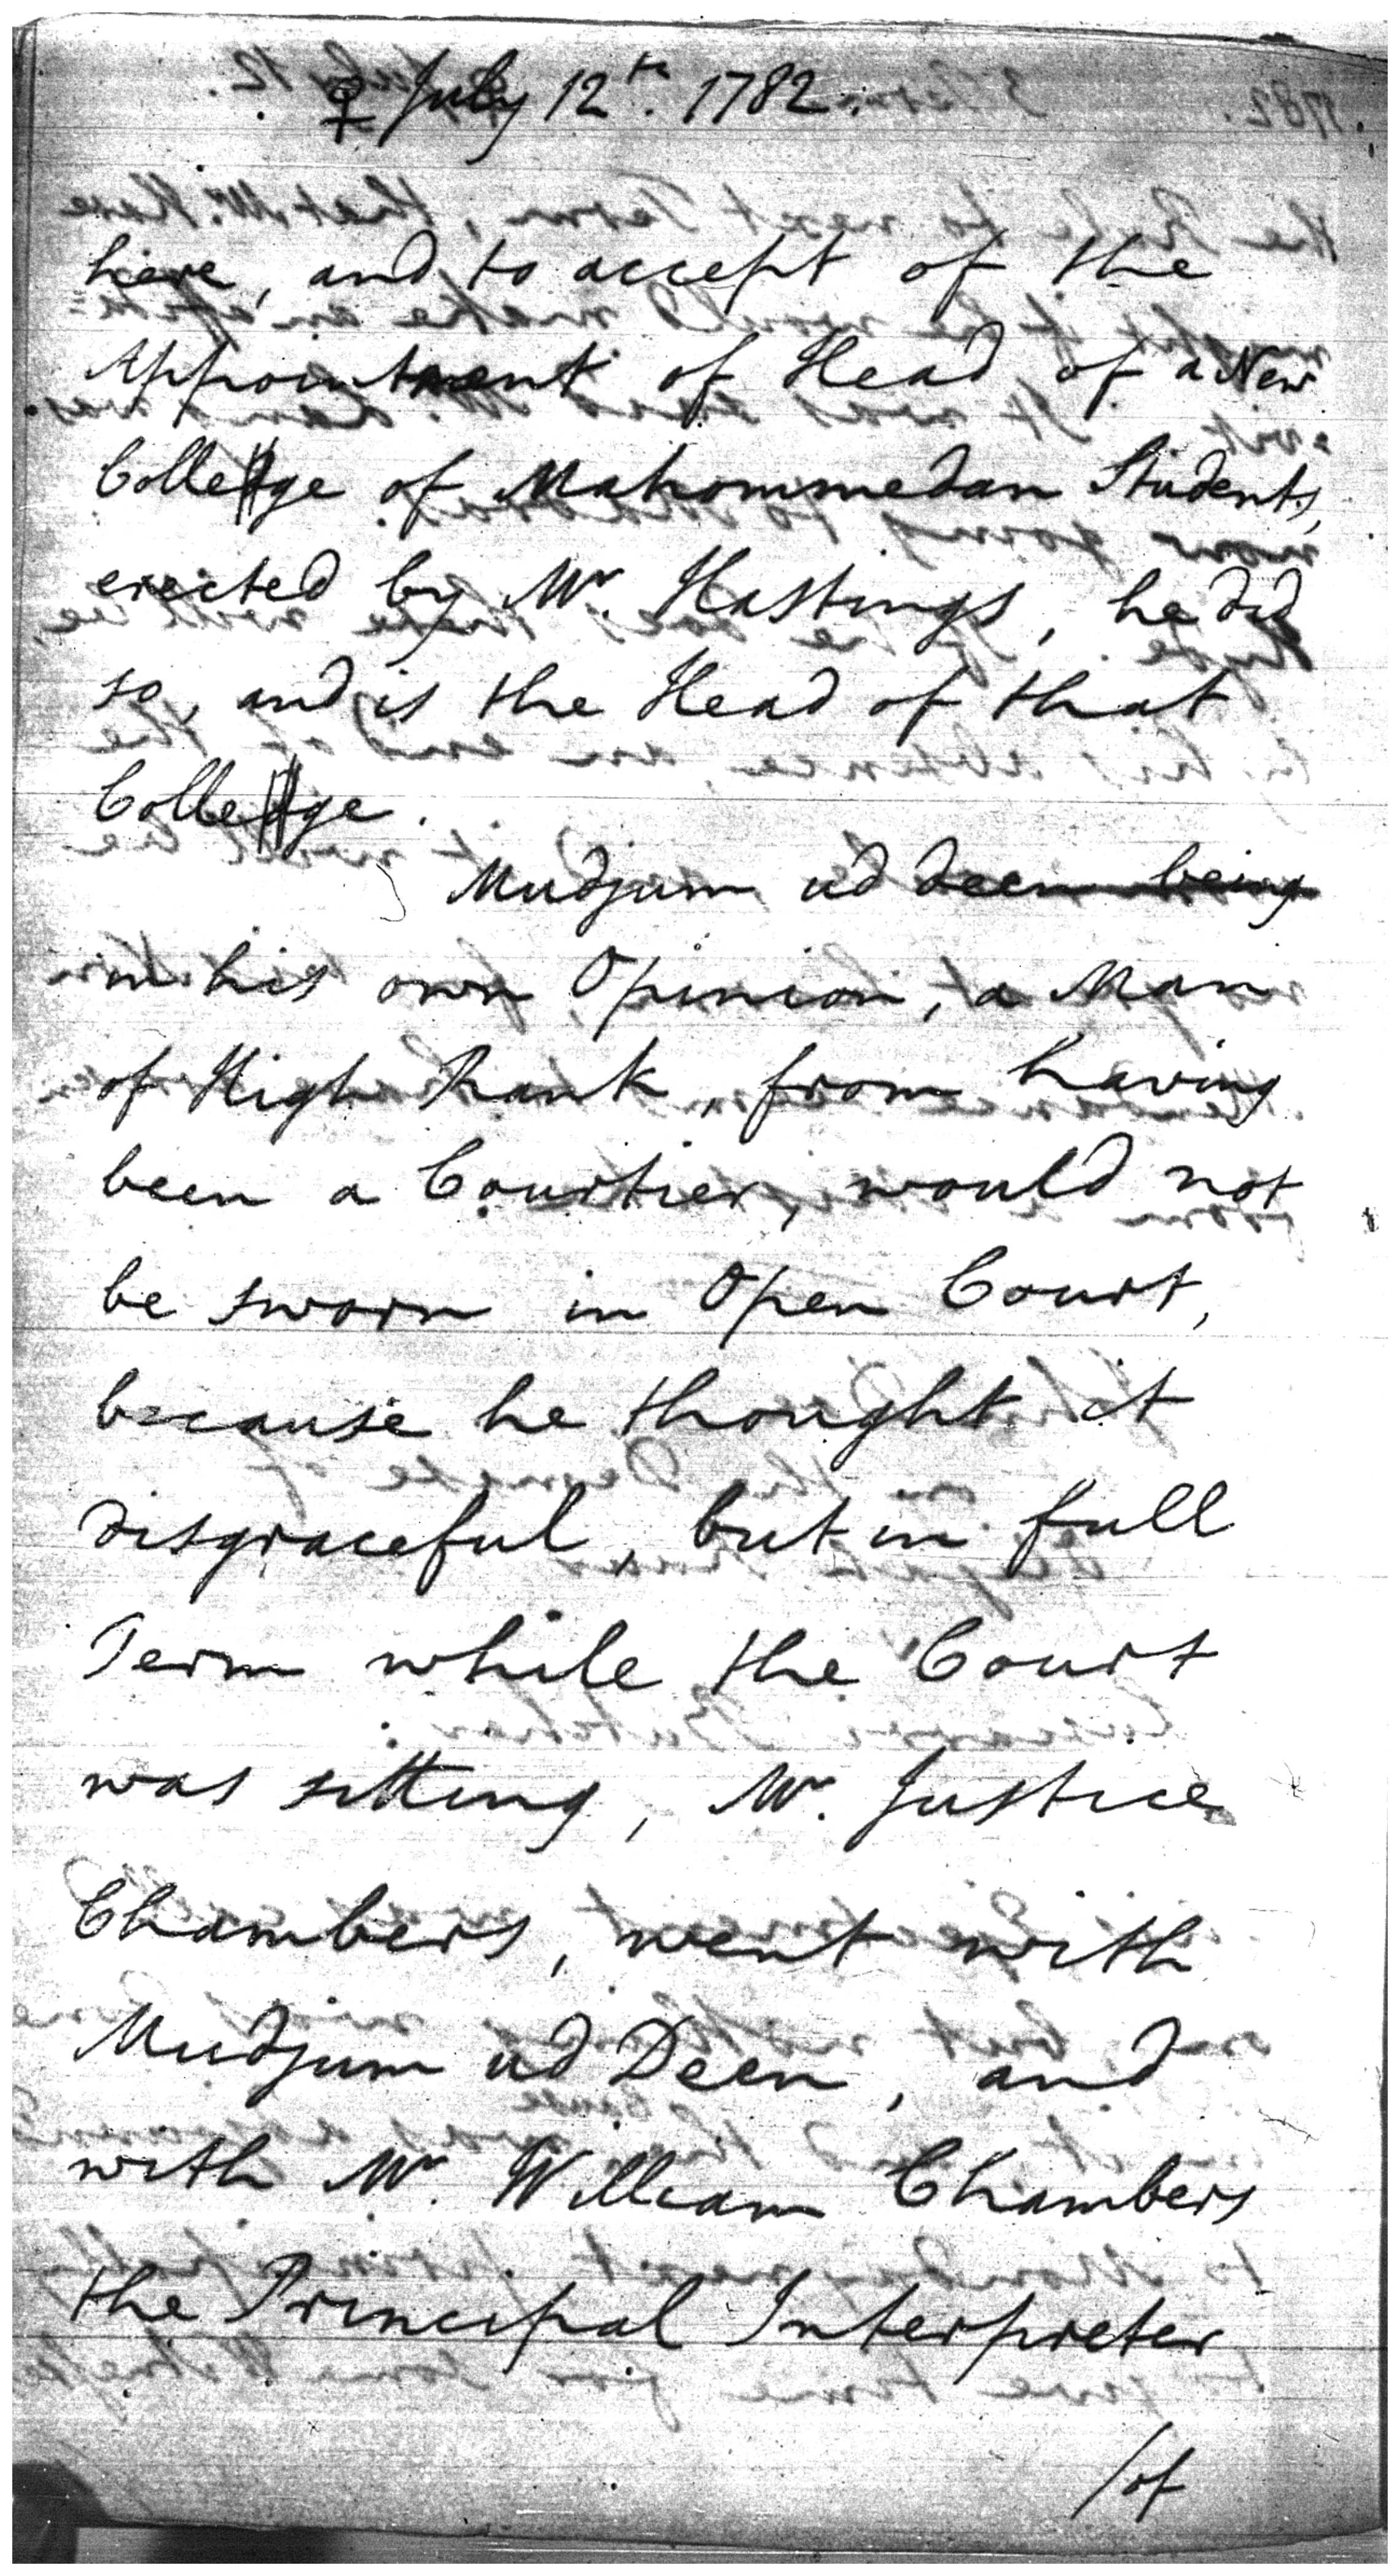 ♀ July 12th. 1782.
here, and to accept of the
Appointment of Head of a New
College of Mahommedan Students,
erected by Mr. Hastings, he did
so, and is the Head of that
College.
Mudjum ud deen being
in his own Opinion, a Man
of High Rank, from having
been a Courtier, would not
be sworn in Open Court,
because he thought it
disgraceful, but in full
Term while the Court
was sitting, Mr. Justice
Chambers, went with
Mudjum ud Deen, and
with Mr. William Chambers
the Principal Interpreter
/of